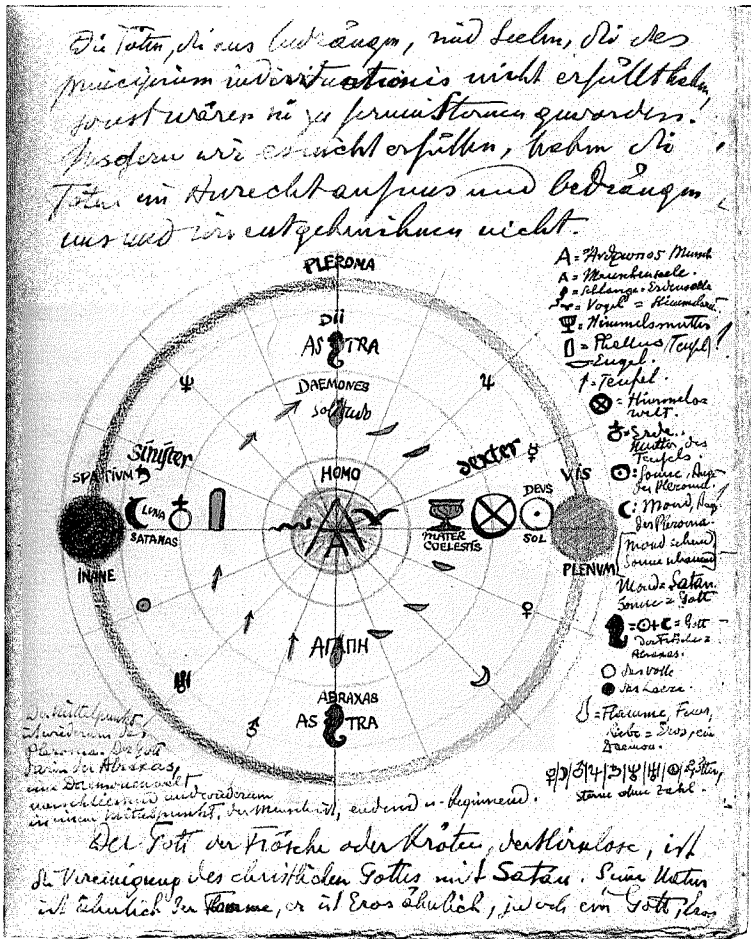 Die Toten, die uns bedrängen, sind Seelen, die das
principium individuationis nicht erfüllt haben,
sonst wären sie zu fernen Sternen geworden.
Insofern wir es nicht erfüllen, haben die
Toten ein Anrecht auf uns und bedrängen
uns und wir entgehen ihnen nicht.
PLEROMA
DII
ASTRA
DAEMONES
HOMO
sinister
dexter
SPATIUM
VIS
LUNA
SATANAS
MATER
COELESTIS
DEUS
SOL
INANE
PLENUM
ΑΓΑΠΗ
ABRAXAS
ASTRA
A = Mensch
A = Menschenseele.
= Schlange = Erdenseele
= Vogel = Himmelsseele
= Himmelsmutter
= Phallus (Teufel)
= Engel.
= Teufel.
= Himmelswelt.
= Erde, Mutter des
Teufels.
= Sonne, Auge
des Pleroma.
= Mond, Auge
des Pleroma.
Mond = Satan
Sonne = Gott
= Gott
der Frösche =
Abraxas.
das Volle
das Leere.
= Flamme, Feuer,
Liebe = Eros, ein
Daemon.
Götter,
Sterne ohne Zahl.
Der Mittelpunkt
ist wiederum das
Pleroma. Der Gott
darin der Abraxas,
eine Daemonenwelt
umschliesst und wiederum
in einem Mittelpunkt, der Mensch ist, endend u. beginnend.
Der Gott der Frösche oder Kröten, der Hirnlose, ist
die Vereinigung des christlichen Gottes mit Satan. Seine Natur
ist ähnlich der Flamme, er ist Eros ähnlich, jedoch ein Gott, Eros